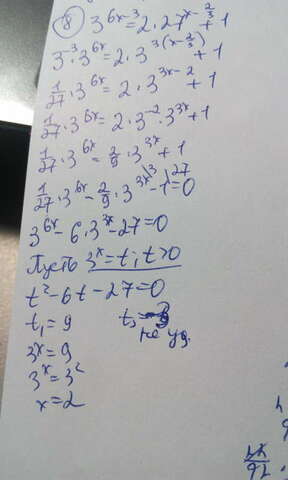 ⑧ 3^{6x-3} = 2·27^{x-\frac{2}{3}} + 1
3^{-3}·3^{6x} = 2·3^{3(x-\frac{2}{3})} + 1
\frac{1}{27}·3^{6x} = 2·3^{3x-2} + 1
\frac{1}{27}·3^{6x} = 2·3^{-2}·3^{3x} + 1
\frac{1}{27}·3^{6x} = \frac{2}{9}·3^{3x} + 1
\frac{1}{27}·3^{6x} - \frac{2}{9}·3^{3x} |^{3} - 1 |^{27} = 0
3^{6x} - 6·3^{3x} - 27 = 0
Пусть 3^{x} = t; t>0
t² - 6t - 27 = 0
t₁ = 9 t₂ = -3
3^{x} = 9 не уд.
3^{x} = 3²
x = 2